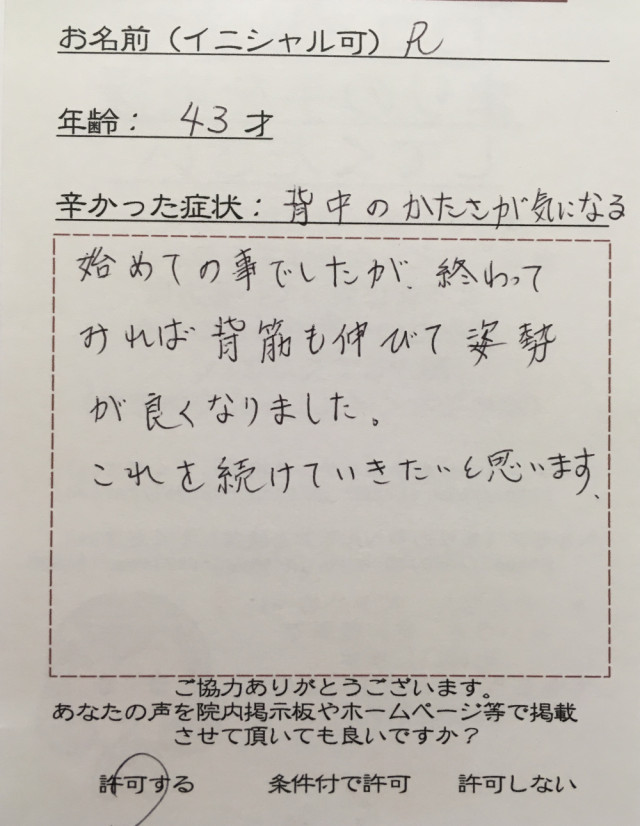 お名前（イニシャル可）R
年齢： 43才
辛かった症状：背中のかたさが気になる
始めての事でしたが、終わって
みれば背筋も伸びて姿勢
が良くなりました。
これを続けていきたいと思います、
ご協力ありがとうございます。
あなたの声を院内掲示板やホームページ等で掲載
させて頂いても良いですか？
許可する 条件付で許可 許可しない